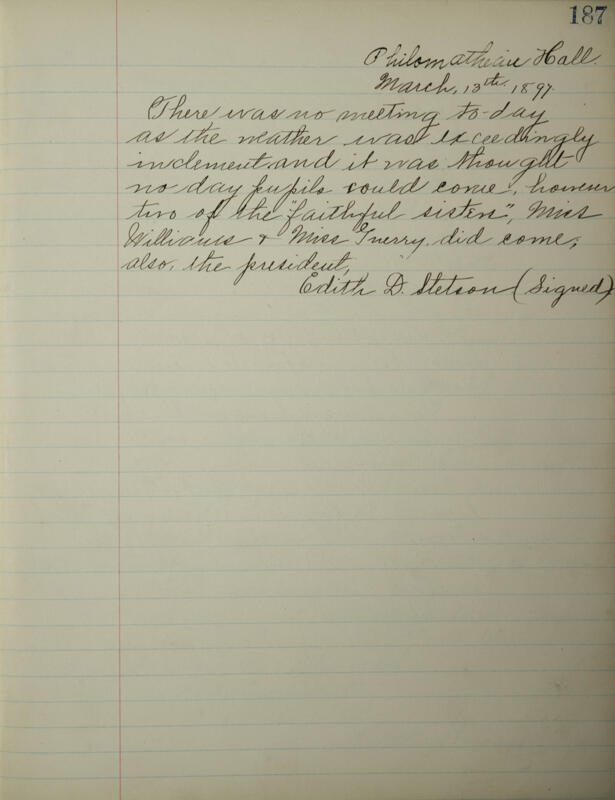 187
Philomathean Hall.
March, 13th 1897.
There was no meeting to-day
as the weather was exceedingly
inclement and it was thought
no day pupils could come, however
two of the "faithful sisters", Miss
Williams & Miss Guerry did come,
also, the president,
Edith D. Stetson (Signed)